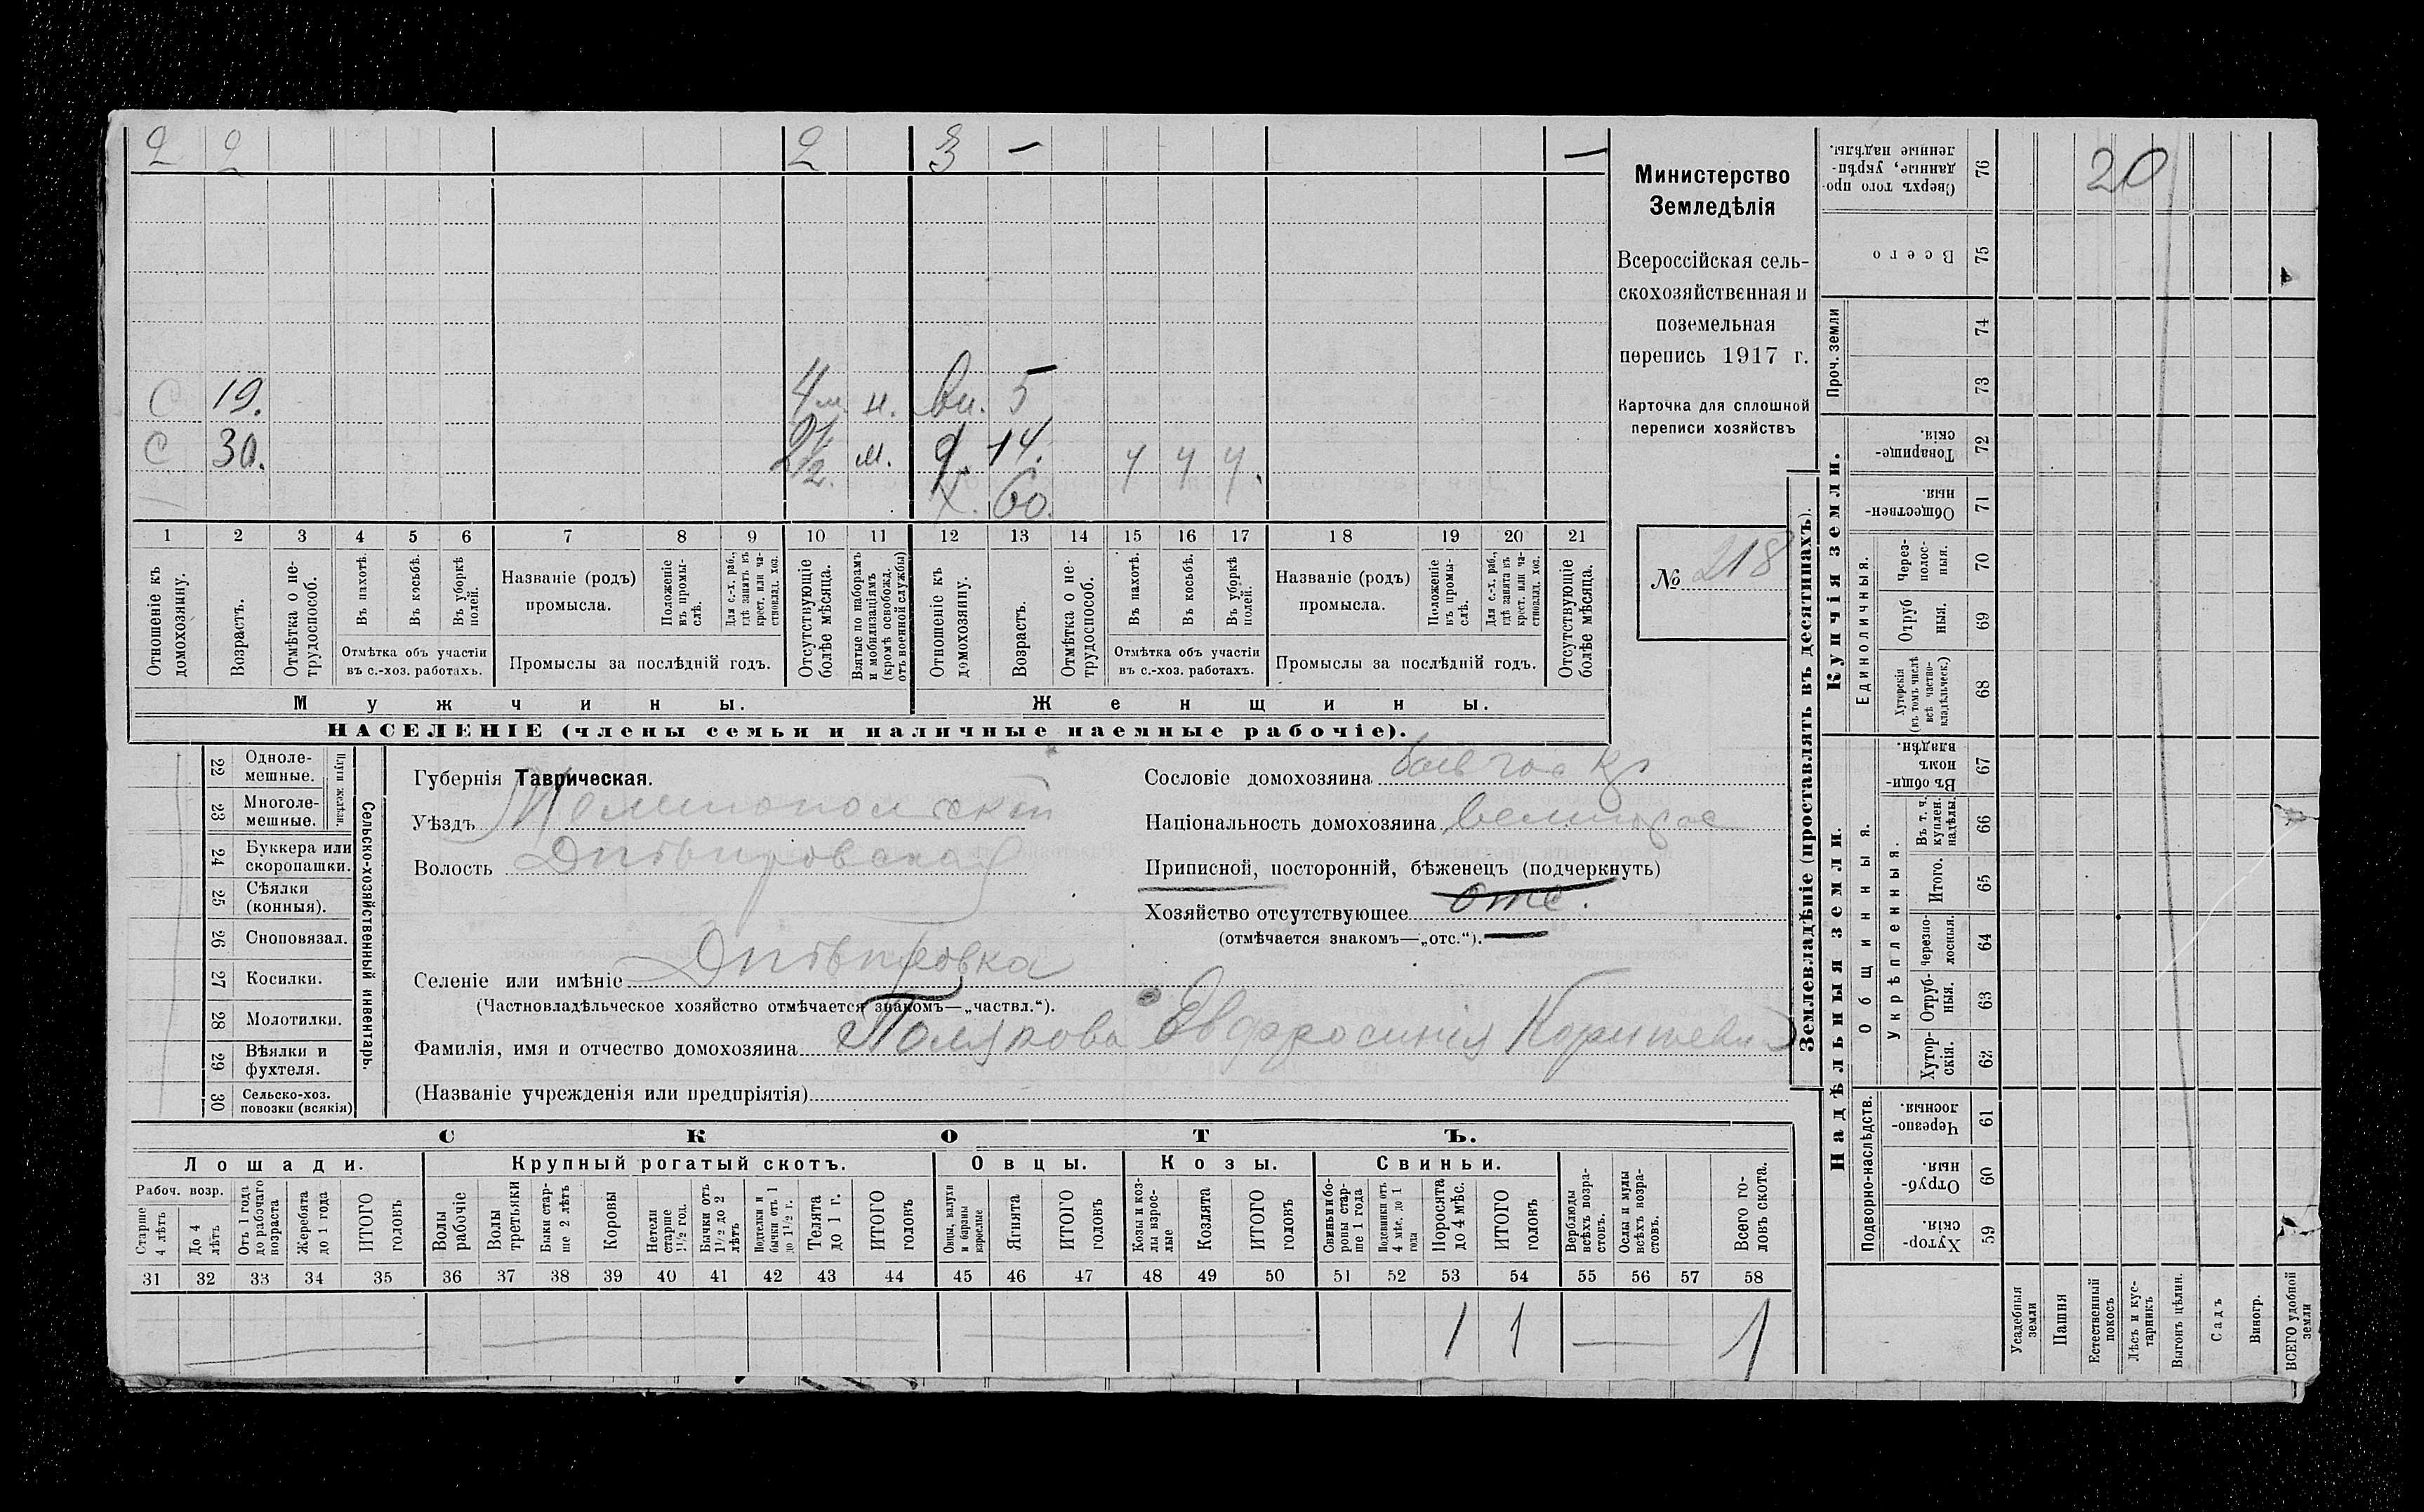 2 2 2 3 — —
С 19. 4 м. н. вн. 5
С 30. 2½ м. д. 14. ч ч ч.
Х. 60.
1 2 3 4 5 6 7 8 9 10 11 12 13 14 15 16 17 18 19 20 21
Отношеніе къ домохозяину.
Возрастъ.
Отмѣтка о не-трудоспособ.
Въ пахотѣ.
Въ косьбѣ.
Въ уборкѣ полей.
Отмѣтка объ участіи въ с.-хоз. работахъ.
Названіе (родъ) промысла.
Положеніе въ промы-слѣ.
Для с.-х. раб., гдѣ занятъ въ крест. или ча-стновлад. хоз.
Промыслы за послѣдній годъ.
Отсутствующіе болѣе мѣсяца.
Взятые по наборамъ и мобилизаціямъ (кромѣ освобожд. отъ военной службы)
Отношеніе къ домохозяину.
Возрастъ.
Отмѣтка о не-трудоспособ.
Въ пахотѣ.
Въ косьбѣ.
Въ уборкѣ полей.
Отмѣтка объ участіи въ с.-хоз. работахъ.
Названіе (родъ) промысла.
Положеніе въ промы-слѣ.
Для с.-х. раб., гдѣ занята въ крест. или ча-стновлад. хоз.
Промыслы за послѣдній годъ.
Отсутствующіе болѣе мѣсяца.
Мужчины.
Женщины.
НАСЕЛЕНІЕ (члены семьи и наличные наемные рабочіе).
Министерство
Земледѣлія
Всероссійская сель-
скохозяйственная и
поземельная
перепись 1917 г.
Карточка для сплошной
переписи хозяйствъ
№ 218
22 Одноле-мешные.
23 Многоле-мешные.
Плуги желѣзн.
24 Буккера или скоропашки.
25 Сѣялки (конныя).
26 Сноповязал.
27 Косилки.
28 Молотилки.
29 Вѣялки и фухтеля.
30 Сельско-хоз. повозки (всякія)
Сельско-хозяйственный инвентарь.
Губернія Таврическая.
Уѣздъ Мелитопольскій
Волость Днѣпровская
Селеніе или имѣніе Днѣпровка
(Частновладѣльческое хозяйство отмѣчается знакомъ—„частвл.“).
Фамилія, имя и отчество домохозяина Полякова Евфросинія
(Названіе учрежденія или предпріятія)
Сословіе домохозяина
Національность домохозяина великорос
Приписной, посторонній, бѣженецъ (подчеркнуть)
Хозяйство отсутствующее отс.
(отмѣчается знакомъ—„отс.“).
СКОТЪ.
Лошади.
Крупный рогатый скотъ.
Овцы.
Козы.
Свиньи.
Рабоч. возр.
Старше 4 лѣтъ
До 4 лѣтъ
Отъ 1 года до рабочаго возраста
Жеребята до 1 года
ИТОГО головъ
Волы рабочіе
Волы третьячки
Быки стар-ше 2 лѣтъ
Коровы
Нетели старше 1½ год.
Бычки отъ 1½ до 2 лѣтъ
Подтелки и бычки отъ 1 до 1½ г.
Телята до 1 г.
ИТОГО головъ
Овцы, валухи и бараны взрослые
Ягнята
ИТОГО головъ
Козы и коз-лы взрос-лые
Козлята
ИТОГО головъ
Свиньи и бо-ровы стар-ше 1 года
Подсвинки отъ 4 мѣс. до 1 года
Поросята до 4 мѣс.
ИТОГО головъ
Верблюды всѣхъ возра-стовъ.
Ослы и мулы всѣхъ возра-стовъ.
Всего го-ловъ скота.
31 32 33 34 35 36 37 38 39 40 41 42 43 44 45 46 47 48 49 50 51 52 53 54 55 56 57 58
1 1 — 1
Землевладѣніе (проставлять въ десятинахъ).
Сверхъ того про-данные, укрѣп-ленные надѣлы. 76 20
Всего 75
Проч. земли 74 73
Купчія земли.
Товарище-скія. 72
Обществен-ныя. 71
Единоличныя.
Через-полос-ныя. 70
Отруб ныя. 69
Хуторскія (въ томъ числѣ всѣ частно-владѣльческ.) 68
Надѣльныя земли.
Общинныя.
Въ общин-номъ владѣн. 67
Укрѣпленныя.
Въ т. ч. куплен. надѣлы. 66
Итого. 65
Черезпо-лосныя. 64
Отруб-ныя. 63
Хутор-скія. 62
Подворно-наслѣдств.
Черезпо-лосныя. 61
Отруб-ныя. 60
Хутор-скія. 59
Усадебныя земли
Пашня
Естественный покосъ
Лѣсъ и кус-тарникъ
Выгонъ цѣлин.
Садъ
Виногр.
ВСЕГО удобной земли